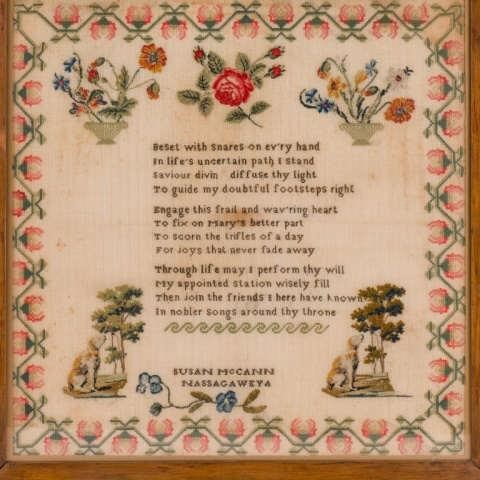 Beset with snares on ev'ry hand
In life's uncertain path I stand
Saviour divin diffuse thy light
To guide my doubtful footsteps right
Engage this frail and wav'ring heart
To fix on Mary's better part
To scorn the trifles of a day
For joys that never fade away
Through life may I perform thy will
My appointed station wisely fill
Then join the friends I here have known
In nobler songs around thy throne
SUSAN McCANN
NASSAGAWEYA